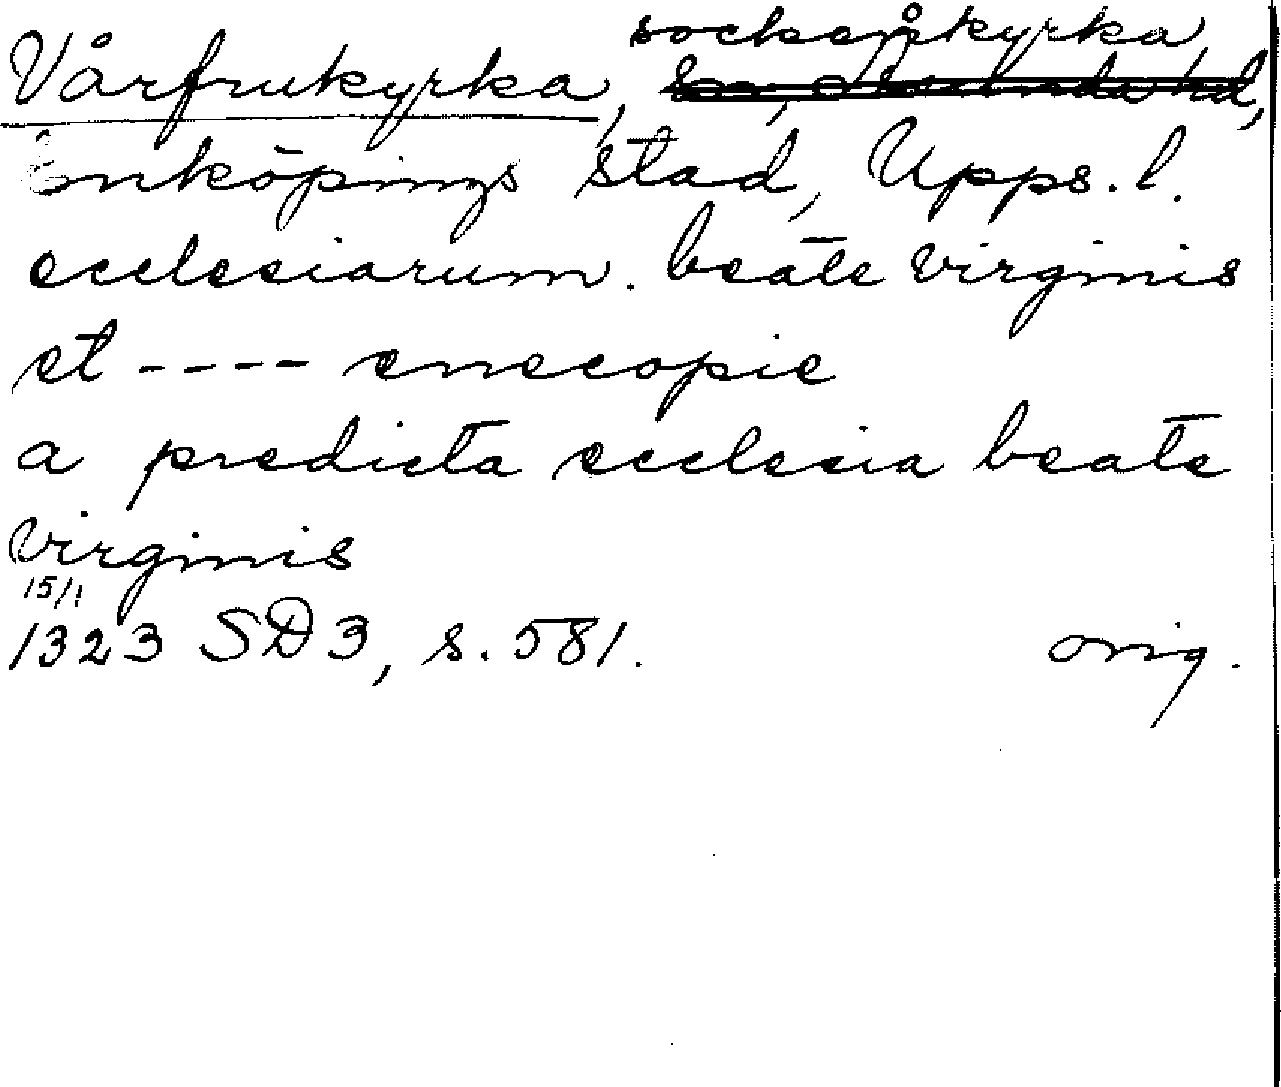 Vårfrukyrka, sockenkyrka,
Enköpings stad, Upps. l.
ecclesiarum. beate virginis
et ---- enecopie
a predicta ecclesia beate
virginis
15/1
1323 SD3, s. 581. orig.